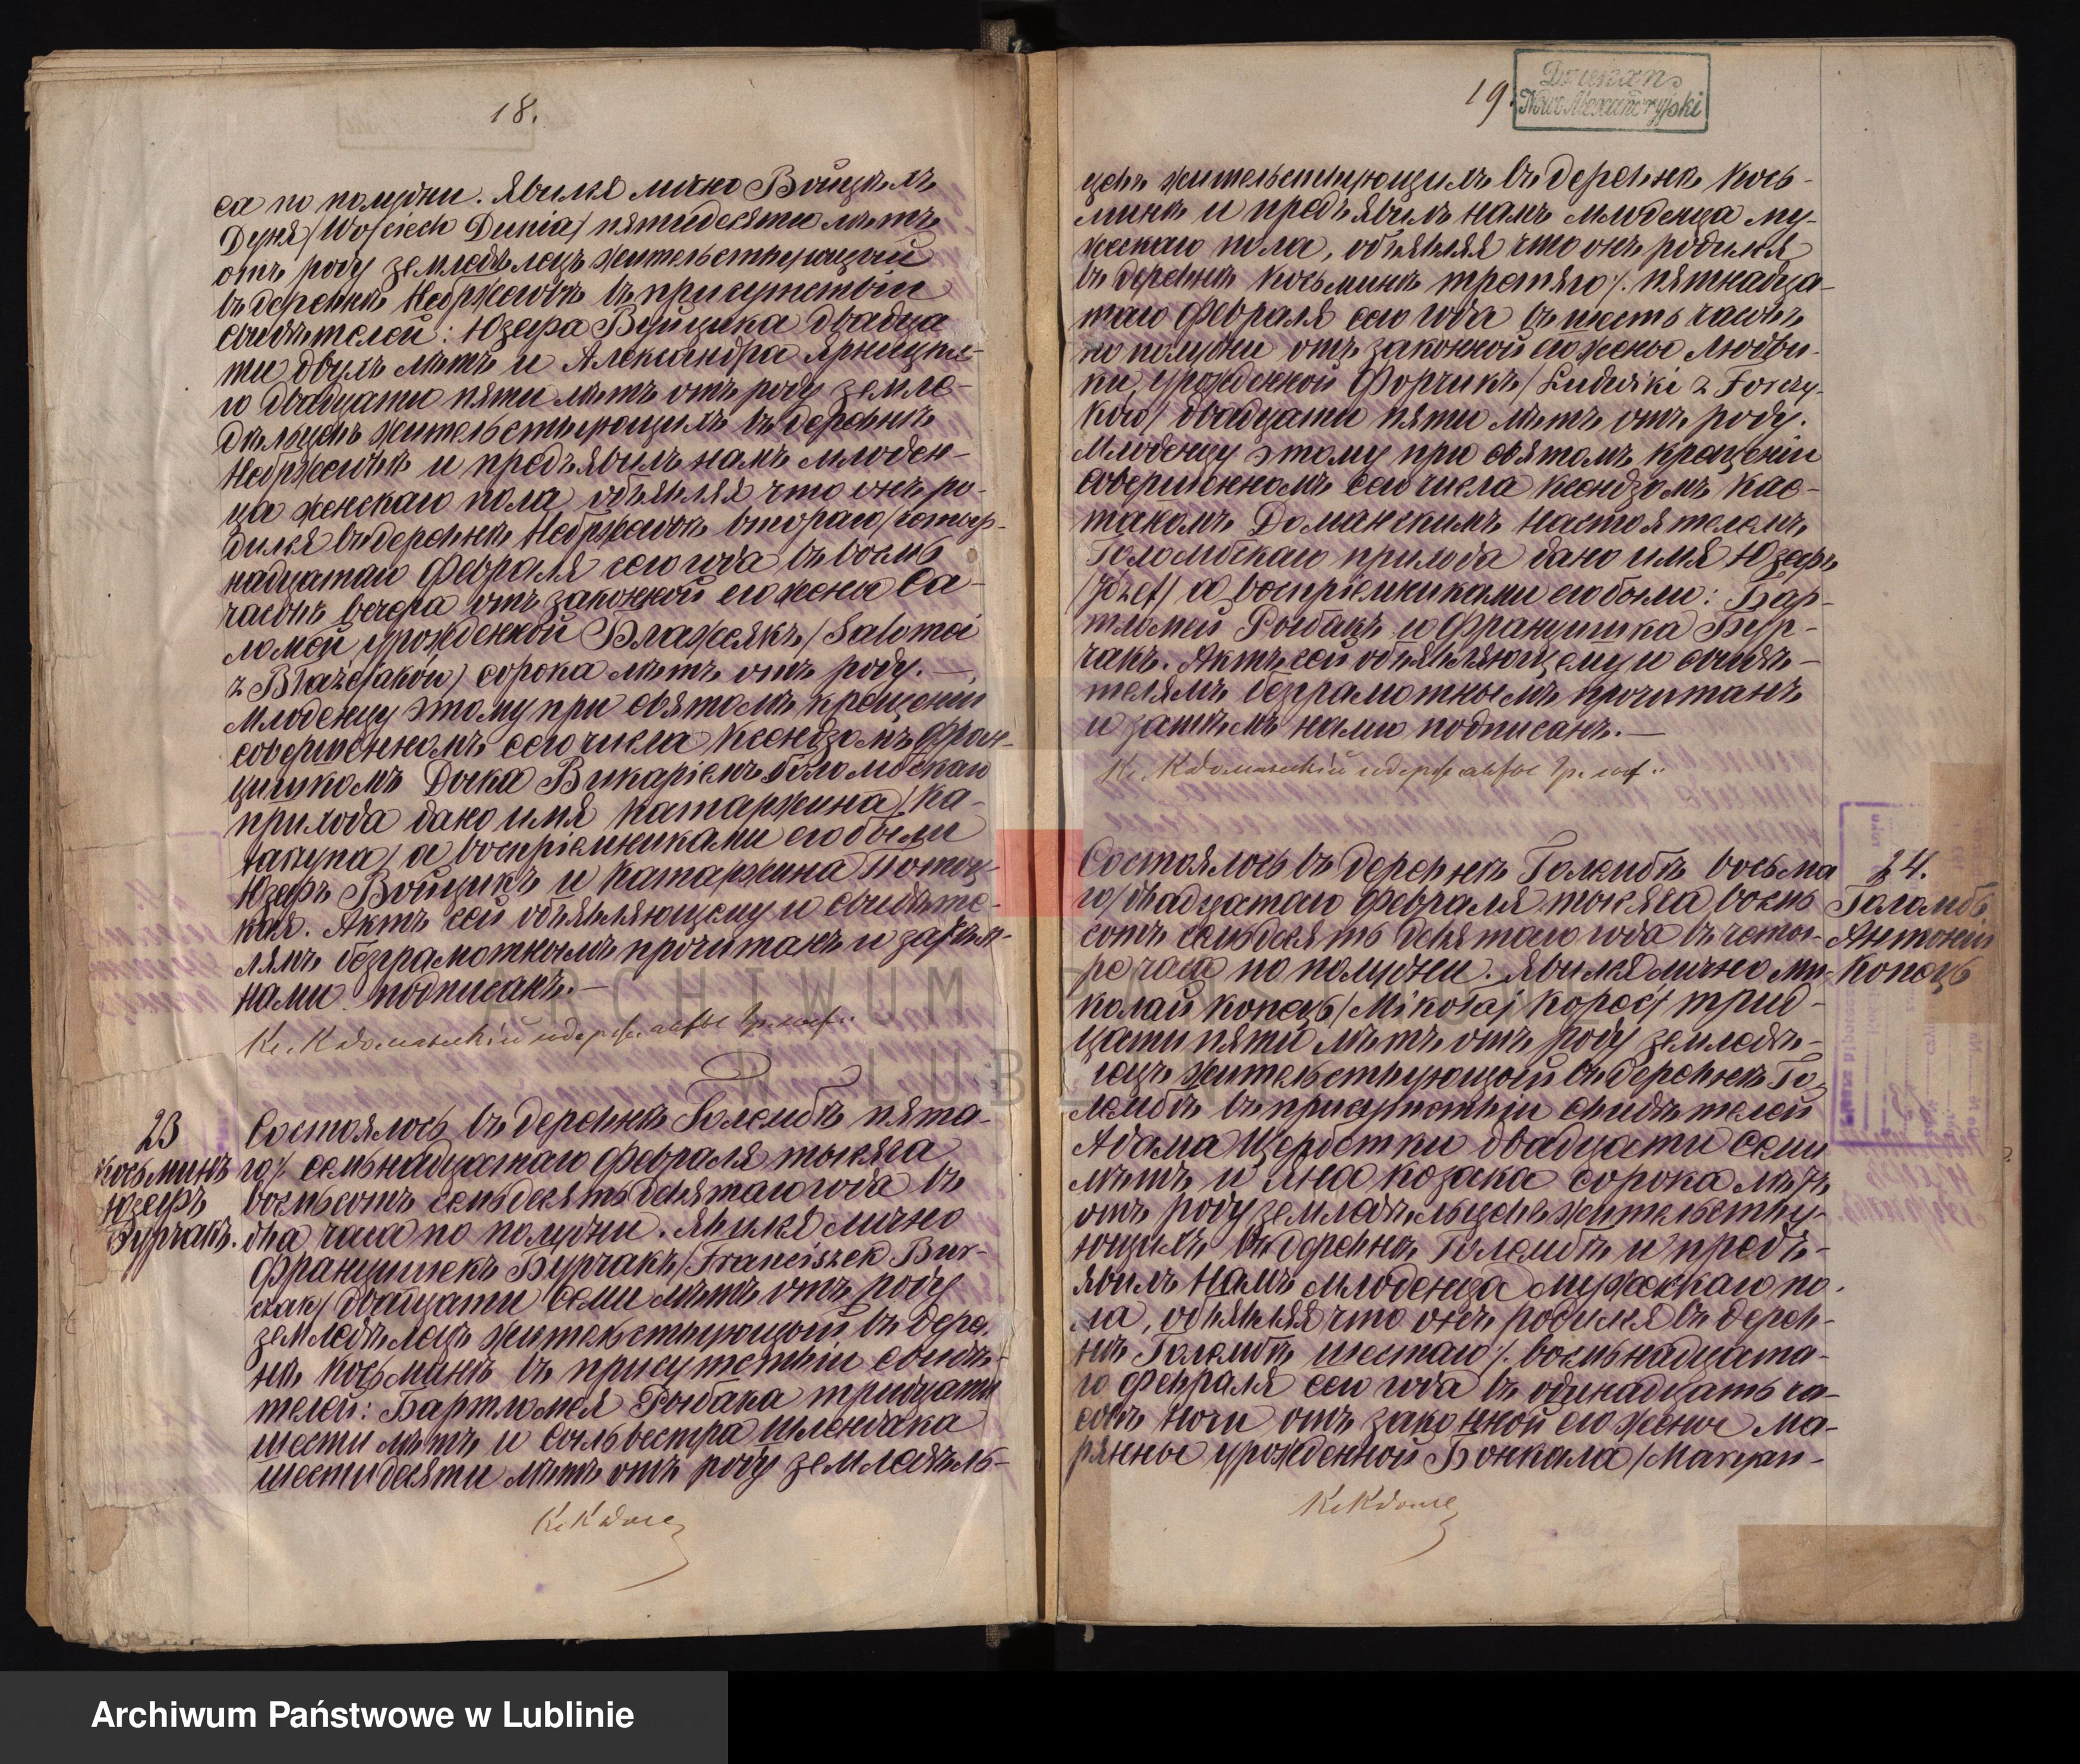 18.
са по полудни. Явился лично Войцѣхъ
Дуня /Wojciech Dunia/ пятидесяти лѣтъ
отъ роду земледѣлецъ жительствующій
въ деревнѣ Небржеговѣ въ присутствіи
свидѣтелей: Юзефа Вуйцика двадца
ти двухъ лѣтъ и Александра Ярницка-
го двадцати пяти лѣтъ отъ роду земле-
дѣльцевъ жительствующихъ въ деревнѣ
Небржеговѣ и предъявилъ намъ младен-
ца женскаго пола объявляя что онъ ро-
дился въ деревнѣ Небржеговѣ втораго /четыр-
надцатаго Февраля сего года въ восемь
часовъ вечера отъ законной его жены Са-
ломеи урожденной Блажеякъ /Salomei
z Błażejaków/ сорока лѣтъ отъ роду. —
Младенцу этому при святомъ крещеніи
совершенномъ сего числа Ксендзомъ Фран-
цишкомъ Дочка Викаріемъ Голомбскаго
прихода дано имя Катаржина /Ka-
tarzyna/ а воспріемниками его были
Юзефъ Войцикъ и Катаржина Потоц-
кая. Актъ сей объявляющему и свидѣте-
лямъ безграмотнымъ прочитанъ и затѣм-
нами подписанъ. —
23
Косьминъ
Юзефъ
Бурчакъ.
Состоялось въ деревнѣ Голембѣ пята-
го /. семьнадцатаго Февраля тысяча
восемьсотъ семьдесятъ девятаго года въ
два часа по полудни. Явился лично
Францишекъ Бурчакъ /Franciszek Bur-
czak/ двадцати семи лѣтъ отъ роду
земледѣлецъ жительствующій въ дерев.
нѣ Косьминѣ въ присутствіи свидѣ-
телей: Бартломея Рыбака тридцати
шести лѣтъ и Сыльвестра Шлендака
шестидесяти лѣтъ отъ роду земледѣль-
19.
Duukan
Nowo Alexandryjski
цевъ жительствующихъ въ деревнѣ Кось-
минѣ и предъявилъ намъ младенца му-
жескаго пола, объявляя что онъ родился
въ деревнѣ Косьминѣ третяго /. пятнадца-
таго Февраля сего года въ шесть часовъ
по полудни отъ законной его жены Людви-
ки урожденной Форчикъ /Ludwiki z Forczy-
ków/ двадцати пяти лѣтъ отъ роду.
Младенцу этому при святомъ крещеніи
совершенномъ сего числа ксендзомъ Кае-
таномъ Доманскимъ Настоятелемъ
Голомбскаго прихода дано имя Юзефъ
/Józef/ а воспріемниками его были: Бар-
тломей Рыбакъ и Францишка Бур-
чакъ. Актъ сей объявляющему и свидѣ-
телямъ безграмотнымъ прочитанъ
и затѣмъ нами подписанъ. —
24.
Голомбъ
Антоній
Копець
Состоялось въ деревнѣ Голембѣ восьма
го /двадцатаго Февраля тысяча восемь
сотъ семьдесятъ девятаго года въ четы-
ре часа по полудни. Явился лично Ми-
колай Копець /Mikołaj Kopeć/ трид-
цати пяти лѣтъ отъ роду земледѣ-
лецъ жительствующій въ деревнѣ Го-
лембѣ въ присутствіи свидѣтелей
Адама Щербетки двадцати семи
лѣтъ и Яна Козака сорока лѣтъ
отъ роду земледѣльцевъ жительству-
ющихъ въ деревнѣ Голембѣ и предъ-
явилъ намъ младенца мужескаго по-
ла, объявляя что онъ родился въ дерев-
нѣ Голембѣ шестаго /. восьмьнадцата-
го Февраля сего года въ одинадцать ча-
совъ ночи отъ законной его жены Ма-
рянны урожденной Бонкала /Maryan-
ARCHIWUM PAŃSTWOWE
W LUBLINIE
Archiwum Państwowe w Lublinie